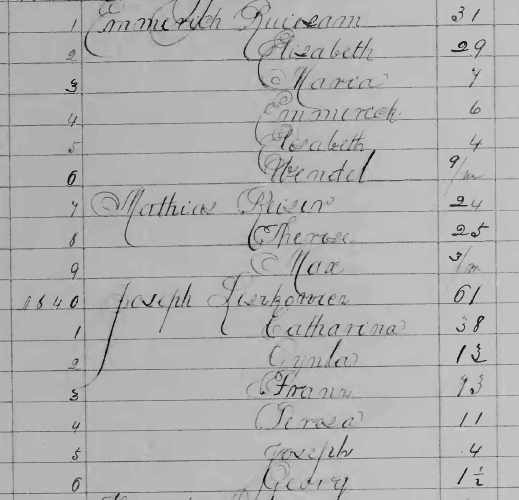 1 Emmerich Ruissam 31
2 Elisabeth 29
3 Maria 7
4 Emmerich 6
5 Elisabeth 4
6 Wendel 9/m
7 Mathias Reiser 24
8 Therese 25
9 Max 3/m
1840 Joseph 61
1 Catharina 38
2 13
3 Franz 13
4 Teresa 11
5 Joseph 4
6 Georg 1 1/2